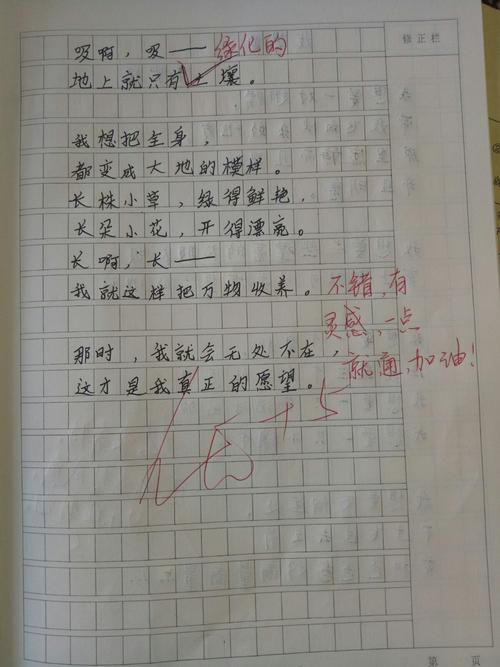 修正栏
吸啊，吸——绿化的
地上就只有土壤。
我想把全身，
都变成大地的模样。
长株小草，绿得鲜艳，
长朵小花，开得漂亮。
长啊，长——
我就这样把万物收养。
不错，有
灵感，一点
就通，加油！
那时，我就会无处不在，
这才是我真正的愿望。
+5
第 页